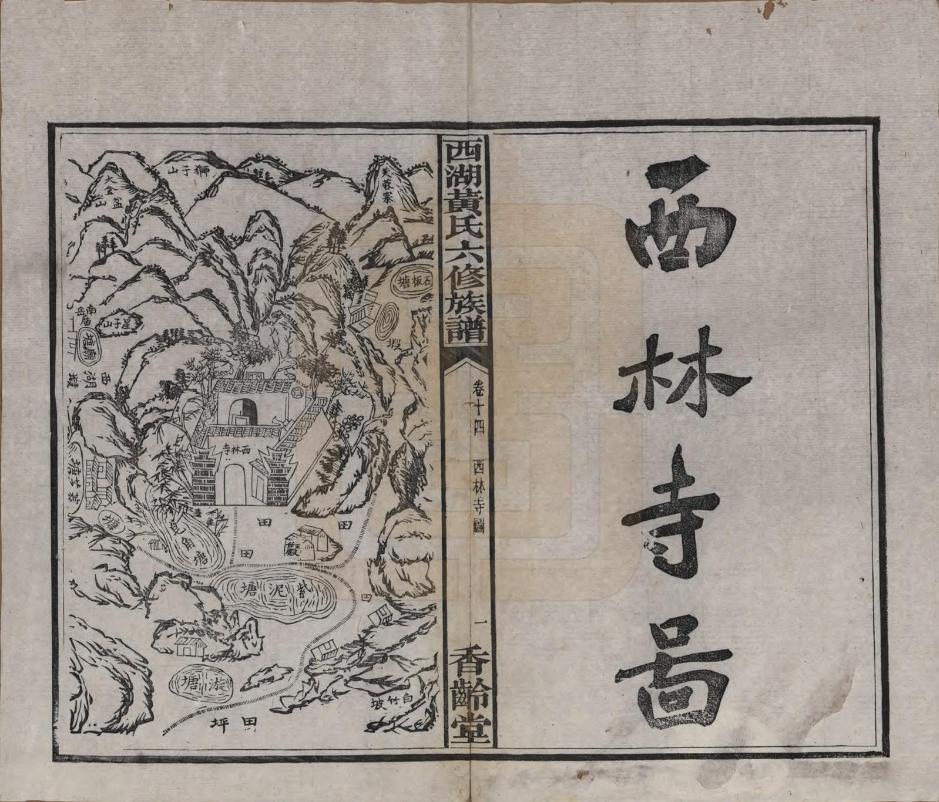 西林寺啚
西湖黃氏六修族譜
卷十四
西林寺圖
一
香齡堂
芙蓉寨
獅子山
大金盆山
石板塘
星子山
西湖塅
西林寺
田
田
田
田
紫泥塘
漩塘
白竹坡
田坪